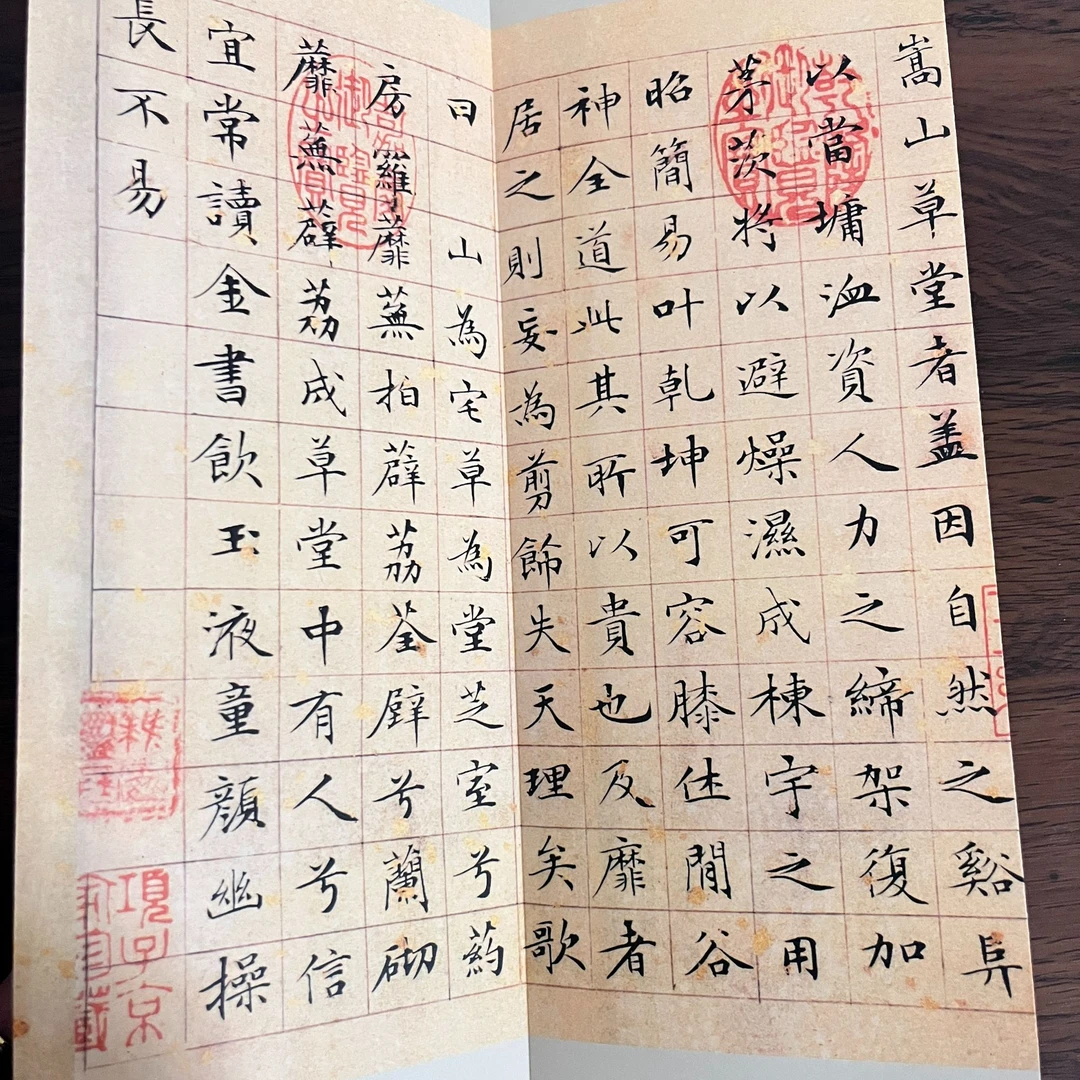 嵩山草堂者盖因自然之谿阜
以當墉洫資人力之締架復加
茅茨將以避燥濕成棟宇之用
昭簡易叶乾坤可容膝休閒谷
神全道此其所以貴也及靡者
居之則妄為剪餙失天理矣歌
曰 山為宅草為堂芝室兮葯
房籮蘼蕪拍薜荔荃壁兮蘭砌
蘼蕪薜荔成草堂中有人兮信
宜常讀金書飲玉液童顏幽操
長不易
項子京